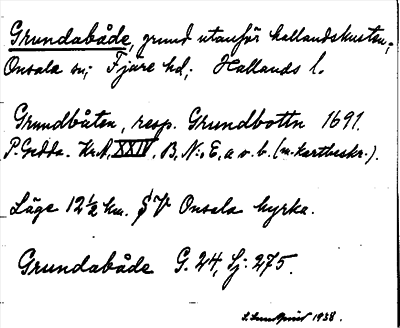 Grundabåde, grund utanför hallandskusten,
Onsala sn; Fjäre hd; Hallands l.
Grundbåten, resp. Grundbottn 1691.
P. Gedda. Kr.A, XXIV, B, N:, E, a o. b. (m. kartbeskr.).
Läge 12½ km. SV Onsala kyrka.
Grundabåde G. 24, Sj: 275.
1938.